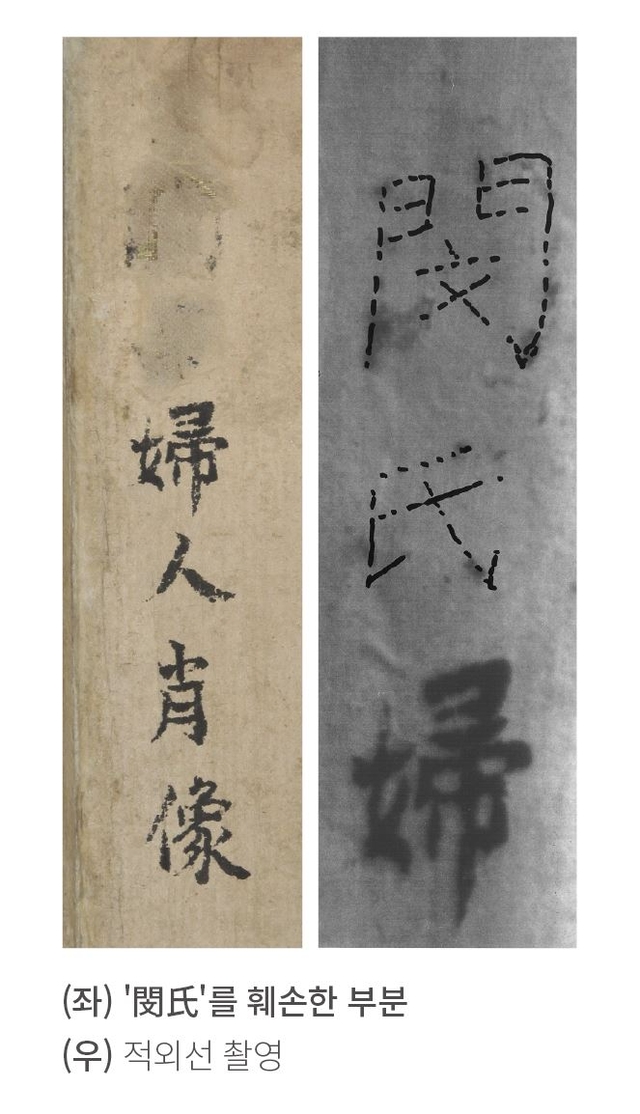 婦人肖像
閔氏婦
(좌) '閔氏'를 훼손한 부분
(우) 적외선 촬영